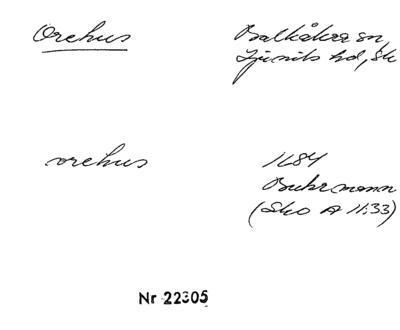 Orehus
Balkåkra sn,
Ljunits hd, Sk
orehus
1684
Buhrmann
(Sko A II:33)
Nr 22305